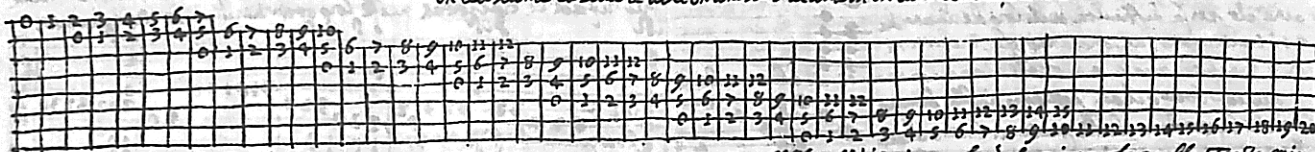 0 1 2 3 4 5 6 7
0 1 2 3 4 5 6 7 8 9 10
0 1 2 3 4 5 6 7 8 9 10 11 12
0 1 2 3 4 5 6 7 8 9 10 11 12
0 1 2 3 4 5 6 7 8 9 10 11 12
0 1 2 3 4 5 6 7 8 9 10 11 12
0 1 2 3 4 5 6 7 8 9 10 11 12 13 14 15
0 1 2 3 4 5 6 7 8 9 10 11 12 13 14 15 16 17 18 19 20